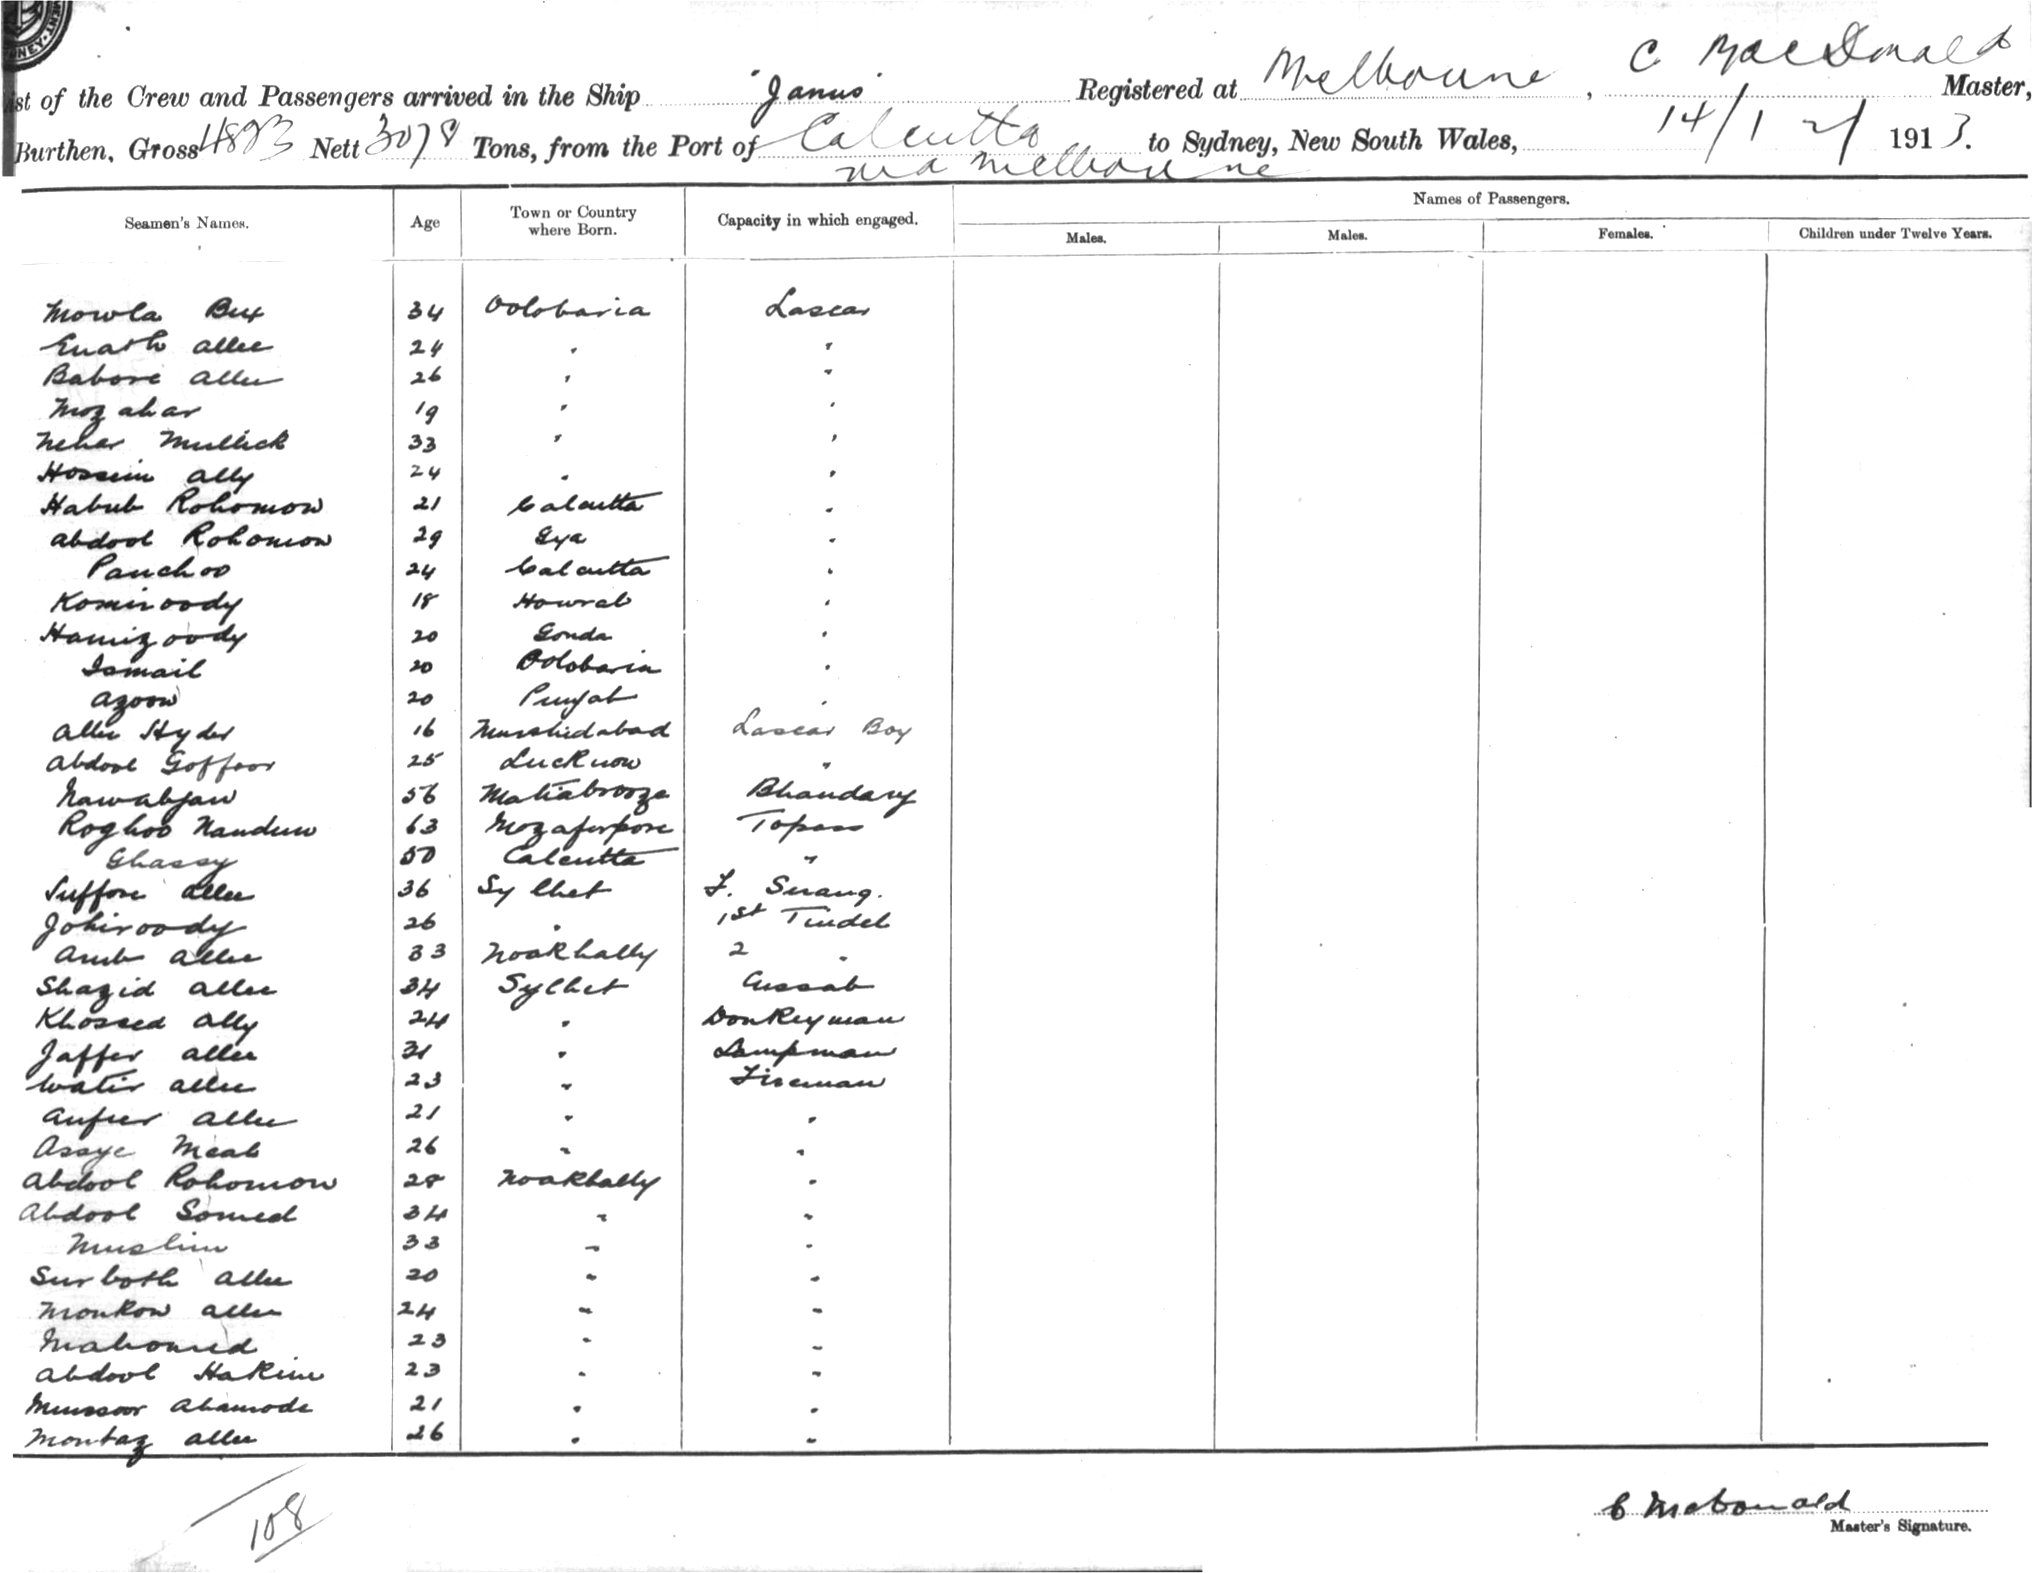 NEY
MENT
ist of the Crew and Passengers arrived in the Ship "Janus" Registered at Melbourne, C MacDonald Master,
Burthen, Gross 4823 Nett 3078 Tons, from the Port of Calcutta to Sydney, New South Wales, 14/12/ 1913.
via Melbourne
Seamen's Names. Age Town or Country where Born. Capacity in which engaged. Names of Passengers.
Males. Males. Females. Children under Twelve Years.
Mowla Bux 34 Oolobaria Lascar
Enath Allee 24 " "
Babore Allee 26 " "
Mozahar 19 " "
Nehar Mullick 33 " "
Hossein Ally 24 " "
Habub Rohomon 21 Calcutta "
Abdool Rohomon 29 Gya "
Panchoo 24 Calcutta "
Komiroody 18 Howrah "
Hamizoody 20 Gonda "
Ismail 20 Oolobaria "
Azoon 20 Punjab "
Allee Hyder 16 Murshidabad Lascar Boy
Abdool Goffoor 25 Lucknow "
Nawabjan 56 Matiabrooze Bhandary
Roghoo Nandun 63 Mozaferpore Topass
Ghassy 50 Calcutta "
Suffore Allee 36 Sylhet F. Serang.
Johiroody 26 " 1st Tindel
Amb Allee 33 Noakhally 2 "
Shazid Allee 34 Sylhet Cussab
Khossed Ally 24 " Donkeyman
Jaffer Allee 31 " Lampman
Watir Allee 23 " Fireman
Aufser Allee 21 " "
Assye Meah 26 " "
Abdool Rohomon 28 Noakhally "
Abdool Somed 34 " "
Muslim 33 " "
Surboth Allee 20 " "
Monkow Allee 24 " "
Mahomed 23 " "
Abdool Hakim 23 " "
Munsoor Ahamode 21 " "
Montaz Allee 26 " "
108
C McDonald
Master's Signature.